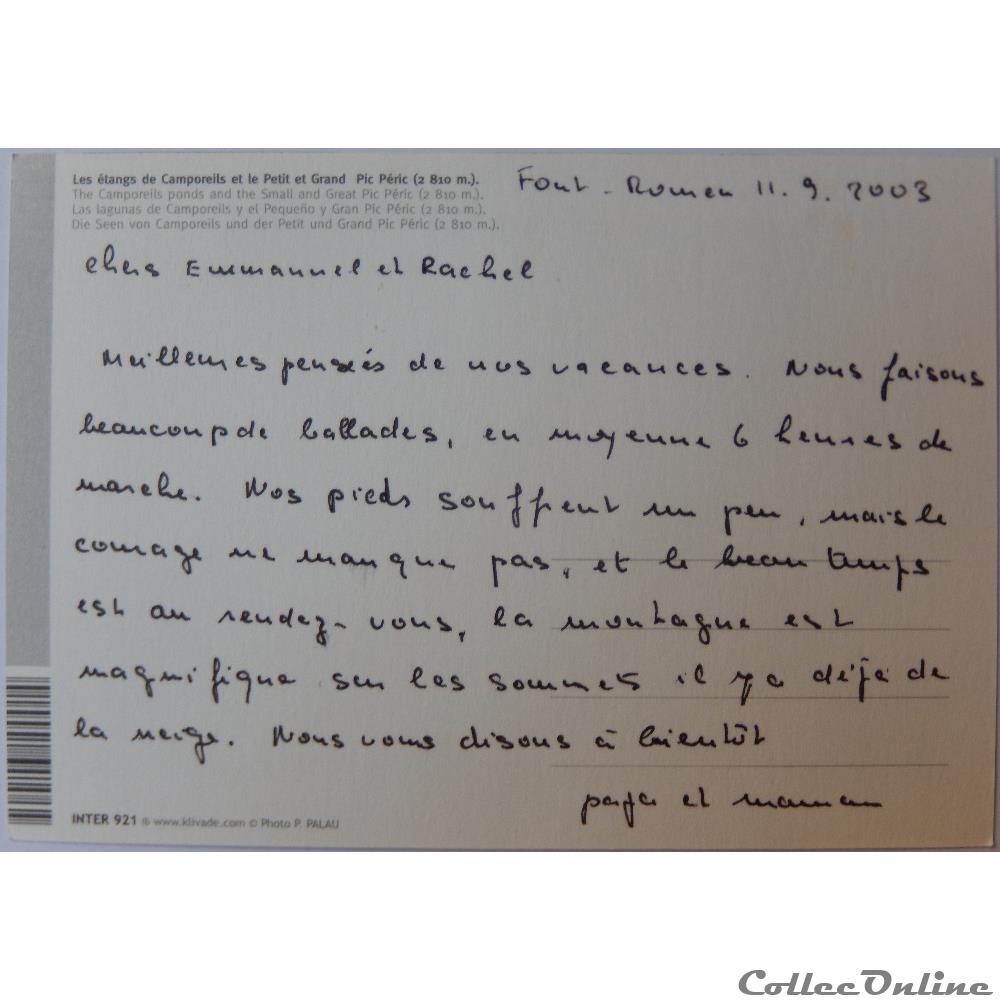 Les étangs de Camporeils et le Petit et Grand Pic Péric (2 810 m.).
The Camporeils ponds and the Small and Great Pic Péric (2 810 m.).
Las lagunas de Camporeils y el Pequeño y Gran Pic Péric (2 810 m.).
Die Seen von Camporeils und der Petit und Grand Pic Péric (2 810 m.).
Font-Romeu 11.9.2003
chers Emmanuel et Rachel
Meilleures pensées de nos vacances. Nous faisons
beaucoup de ballades, en moyenne 6 heures de
marche. Nos pieds souffrent un peu, mais le
courage ne manque pas, et le beau temps
est au rendez-vous, la montagne est
magnifique sur les sommets il y a déjà de
la neige. Nous vous disons à bientôt
papa et maman
INTER 921 ® www.klivade.com © Photo P. PALAU
CollecOnline